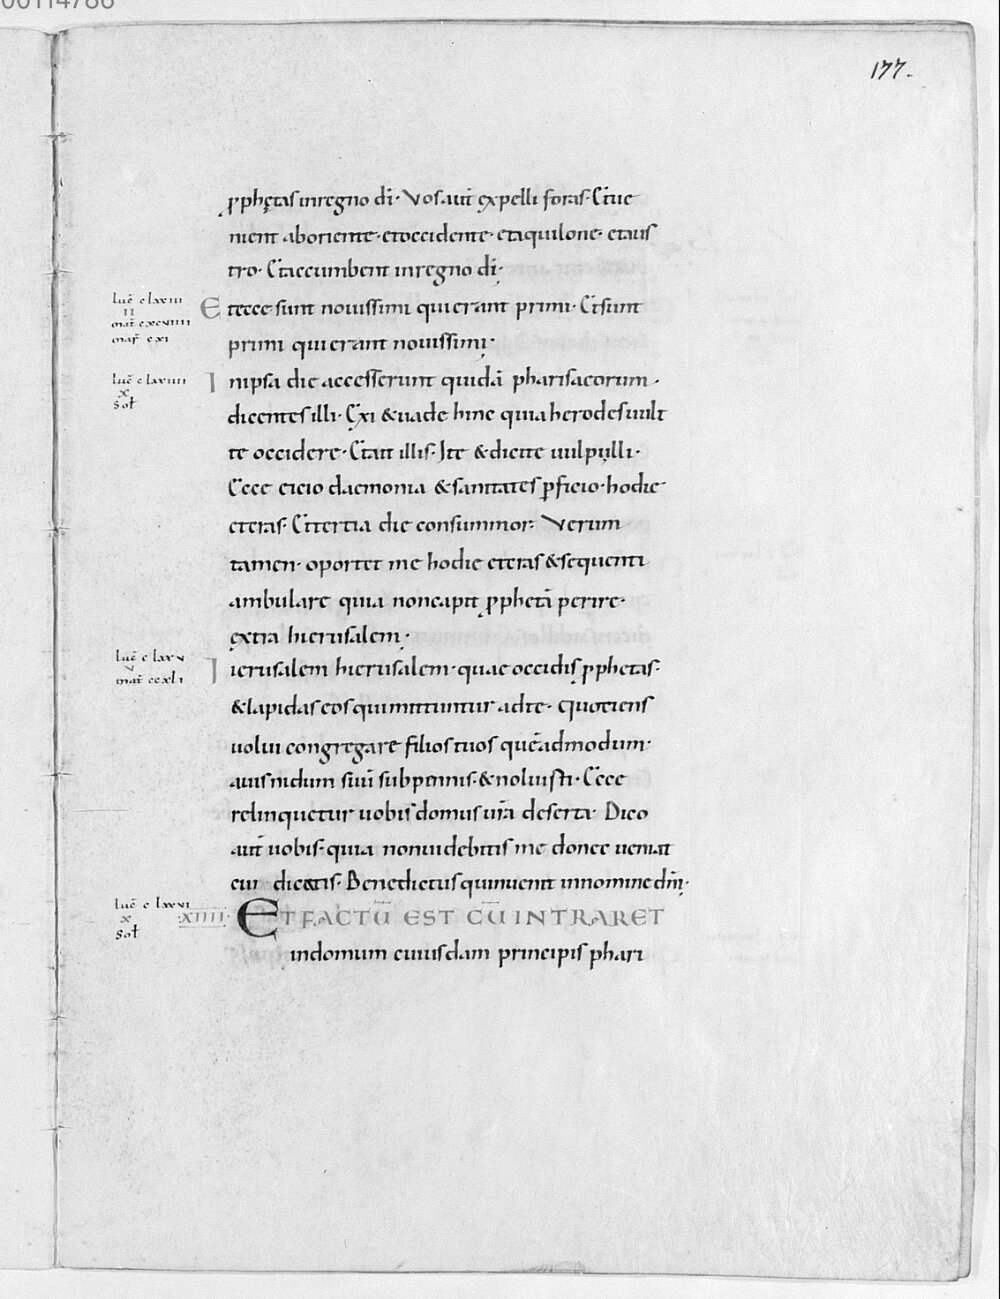 00114786
177.
ꝓph&ecedil;tas in regno dī· Vos aut̄ expelli foras· Et ue
nient ab oriente· et occidente· et aquilone· et aus
tro· Et accumbent in regno dī·
luc̄ c lxxiii
II
mat̄ c xcviiii
mar̄ c xi
Et ecce sunt nouissimi qui erant primi· Et sunt
primi qui erant nouissimi·
luc̄ c lxxiiii
x
sol̄
In ipsa die accesserunt quidā pharisaeorum·
dicentes illi· Exi & uade hinc quia herodes uult
te occidere· Et ait illis· Ite & dicite uulpulli·
Ecce eicio daemonia & sanitates ꝑficio· hodie
et cras· Et tertia die consummor· Verum
tamen· oportet me hodie et cras & sequenti
ambulare quia non capit ꝓphetā perire·
extra hierusalem·
luc̄ c lxxv
v
mat̄ ccxli
Iierusalem hierusalem· quae occidis ꝓphetas·
& lapidas eos qui mittuntur ad te· quotiens
uolui congregare filios tuos quēadmodum·
auis nidum suū sub pennis· & noluisti· Ecce
relinquetur uobis domus ur̄a deserta· Dico
aut̄ uobis· quia non uidebitis me donec ueniat
cui dicetis· Benedictus qui uenit in nomine dn̄i·
luc̄ c lxxvi
x
sol̄
·XIIII· ET FACTŪ EST CŪ INTRARET
in domum cuiusdam principis phari